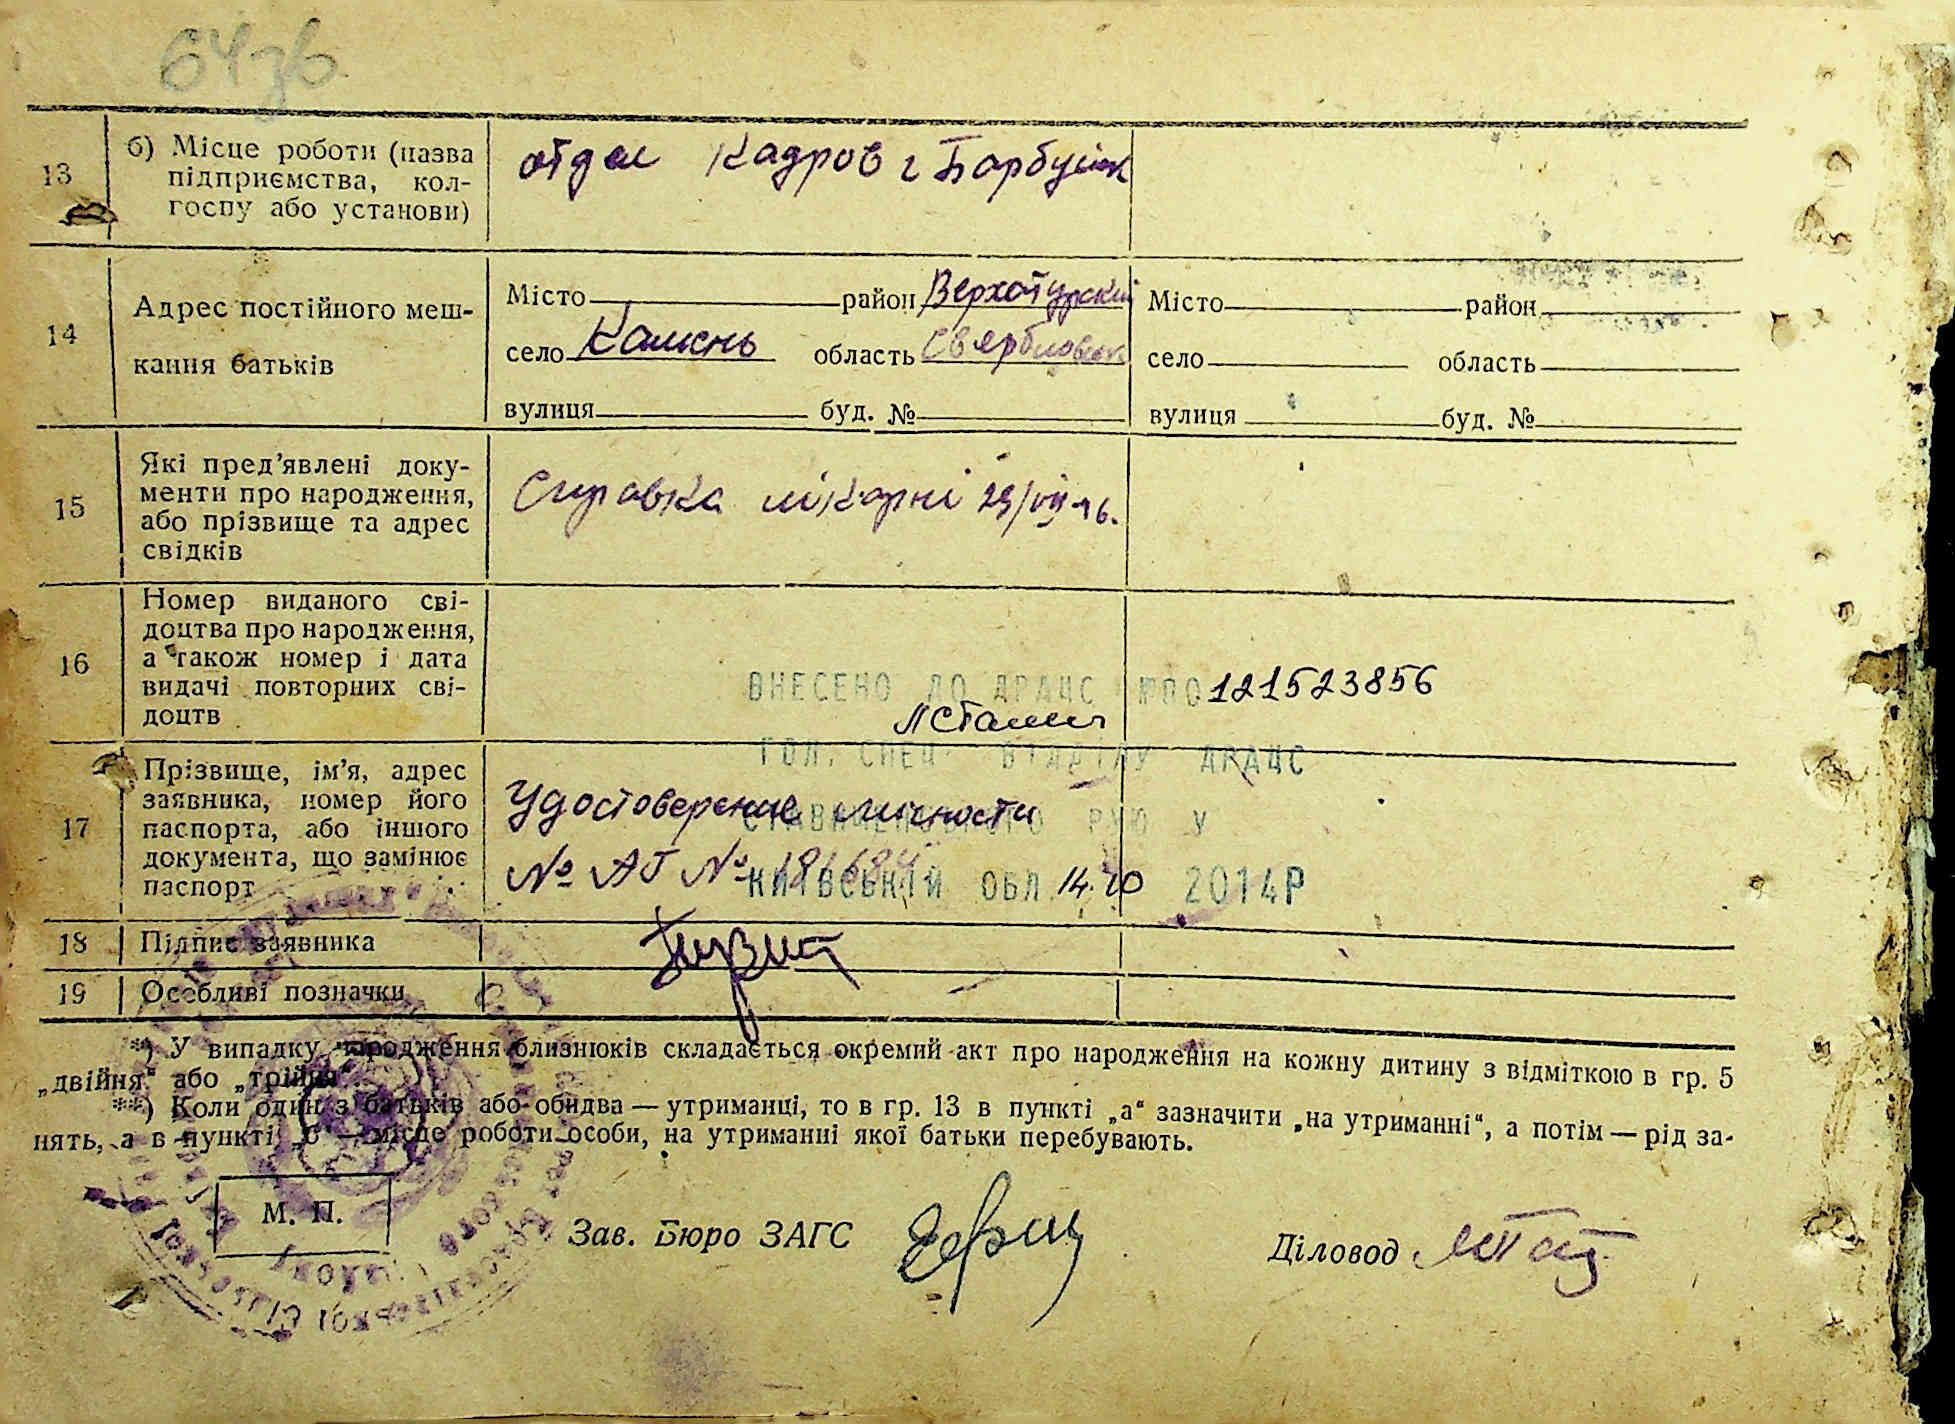 64зв
13
б) Місце роботи (назва
підприємства, кол-
госпу або установи)
отдел Кадров г Барбуйск
14
Адрес постійного меш-
кання батьків
Місто район Верхотурский
село Камень область
вулиця буд. №
Місто район
село область
вулиця буд. №
15
Які пред'явлені доку-
менти про народження,
або прізвище та адрес
свідків
Справка лікарні 29/VII-46.
16
Номер виданого сві-
доцтва про народження,
а також номер і дата
видачі повторних сві-
доцтв
ВНЕСЕНО ДО ДРАЦС №00121523856
ГОЛ. СПЕЦ ВІДДІЛУ ДРАЦС
РУЮ У
КИЇВСЬКІЙ ОБЛ 14.10 2014Р
17
Прізвище, ім'я, адрес
заявника, номер його
паспорта, або іншого
документа, що замінює
паспорт
Удостоверение личности
№ АГ №
18
Підпис заявника
19
Особливі позначки
*) У випадку народження близнюків складається окремий акт про народження на кожну дитину з відміткою в гр. 5
„двійня“ або „трійня“.
**) Коли один з батьків або обидва — утриманці, то в гр. 13 в пункті „а“ зазначити „на утриманні“, а потім — рід за-
нять, а в пункті „б“ — місце роботи особи, на утриманні якої батьки перебувають.
М. П.
Зав. Бюро ЗАГС
Діловод